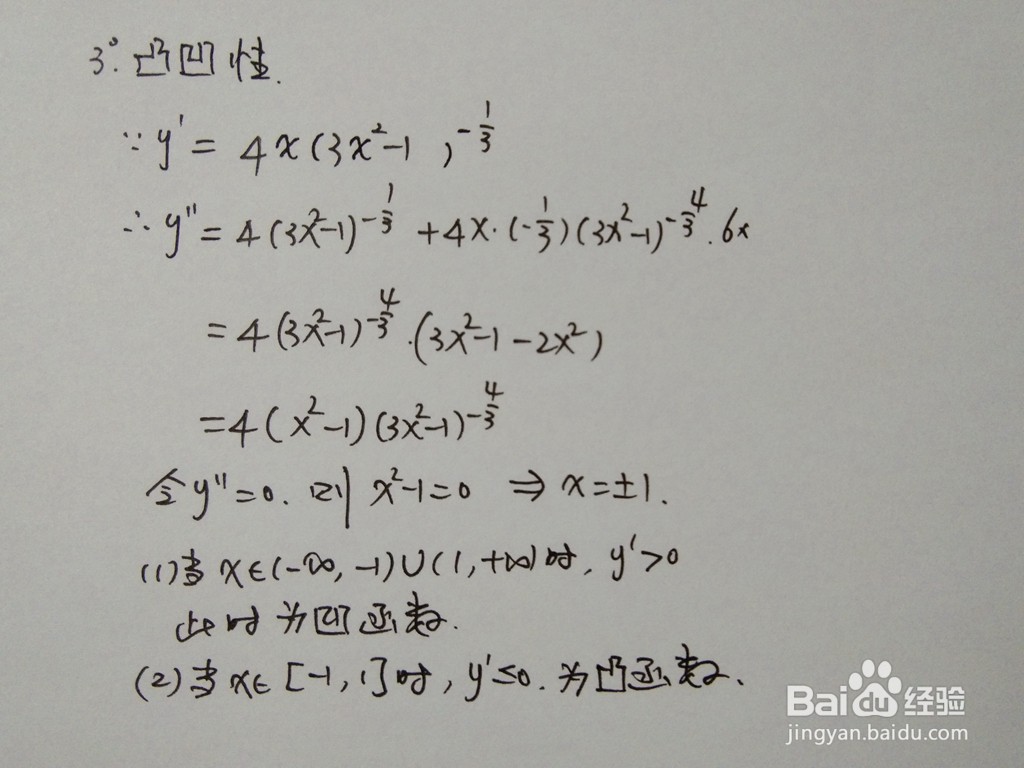 3°. 凸凹性.
∵ y' = 4x(3x²-1)^{-1/3}
∴ y'' = 4(3x²-1)^{-1/3} + 4x·(-1/3)(3x²-1)^{-4/3}·6x
= 4(3x²-1)^{-4/3}·(3x²-1-2x²)
= 4(x²-1)(3x²-1)^{-4/3}
令y''=0. 则 x²-1=0 ⇒ x=±1.
(1)当 x∈(-∞,-1)∪(1,+∞)时, y'>0
此时为凹函数.
(2)当 x∈[-1,1]时, y'≤0. 为凸函数.
Baidu 经验
jingyan.baidu.com